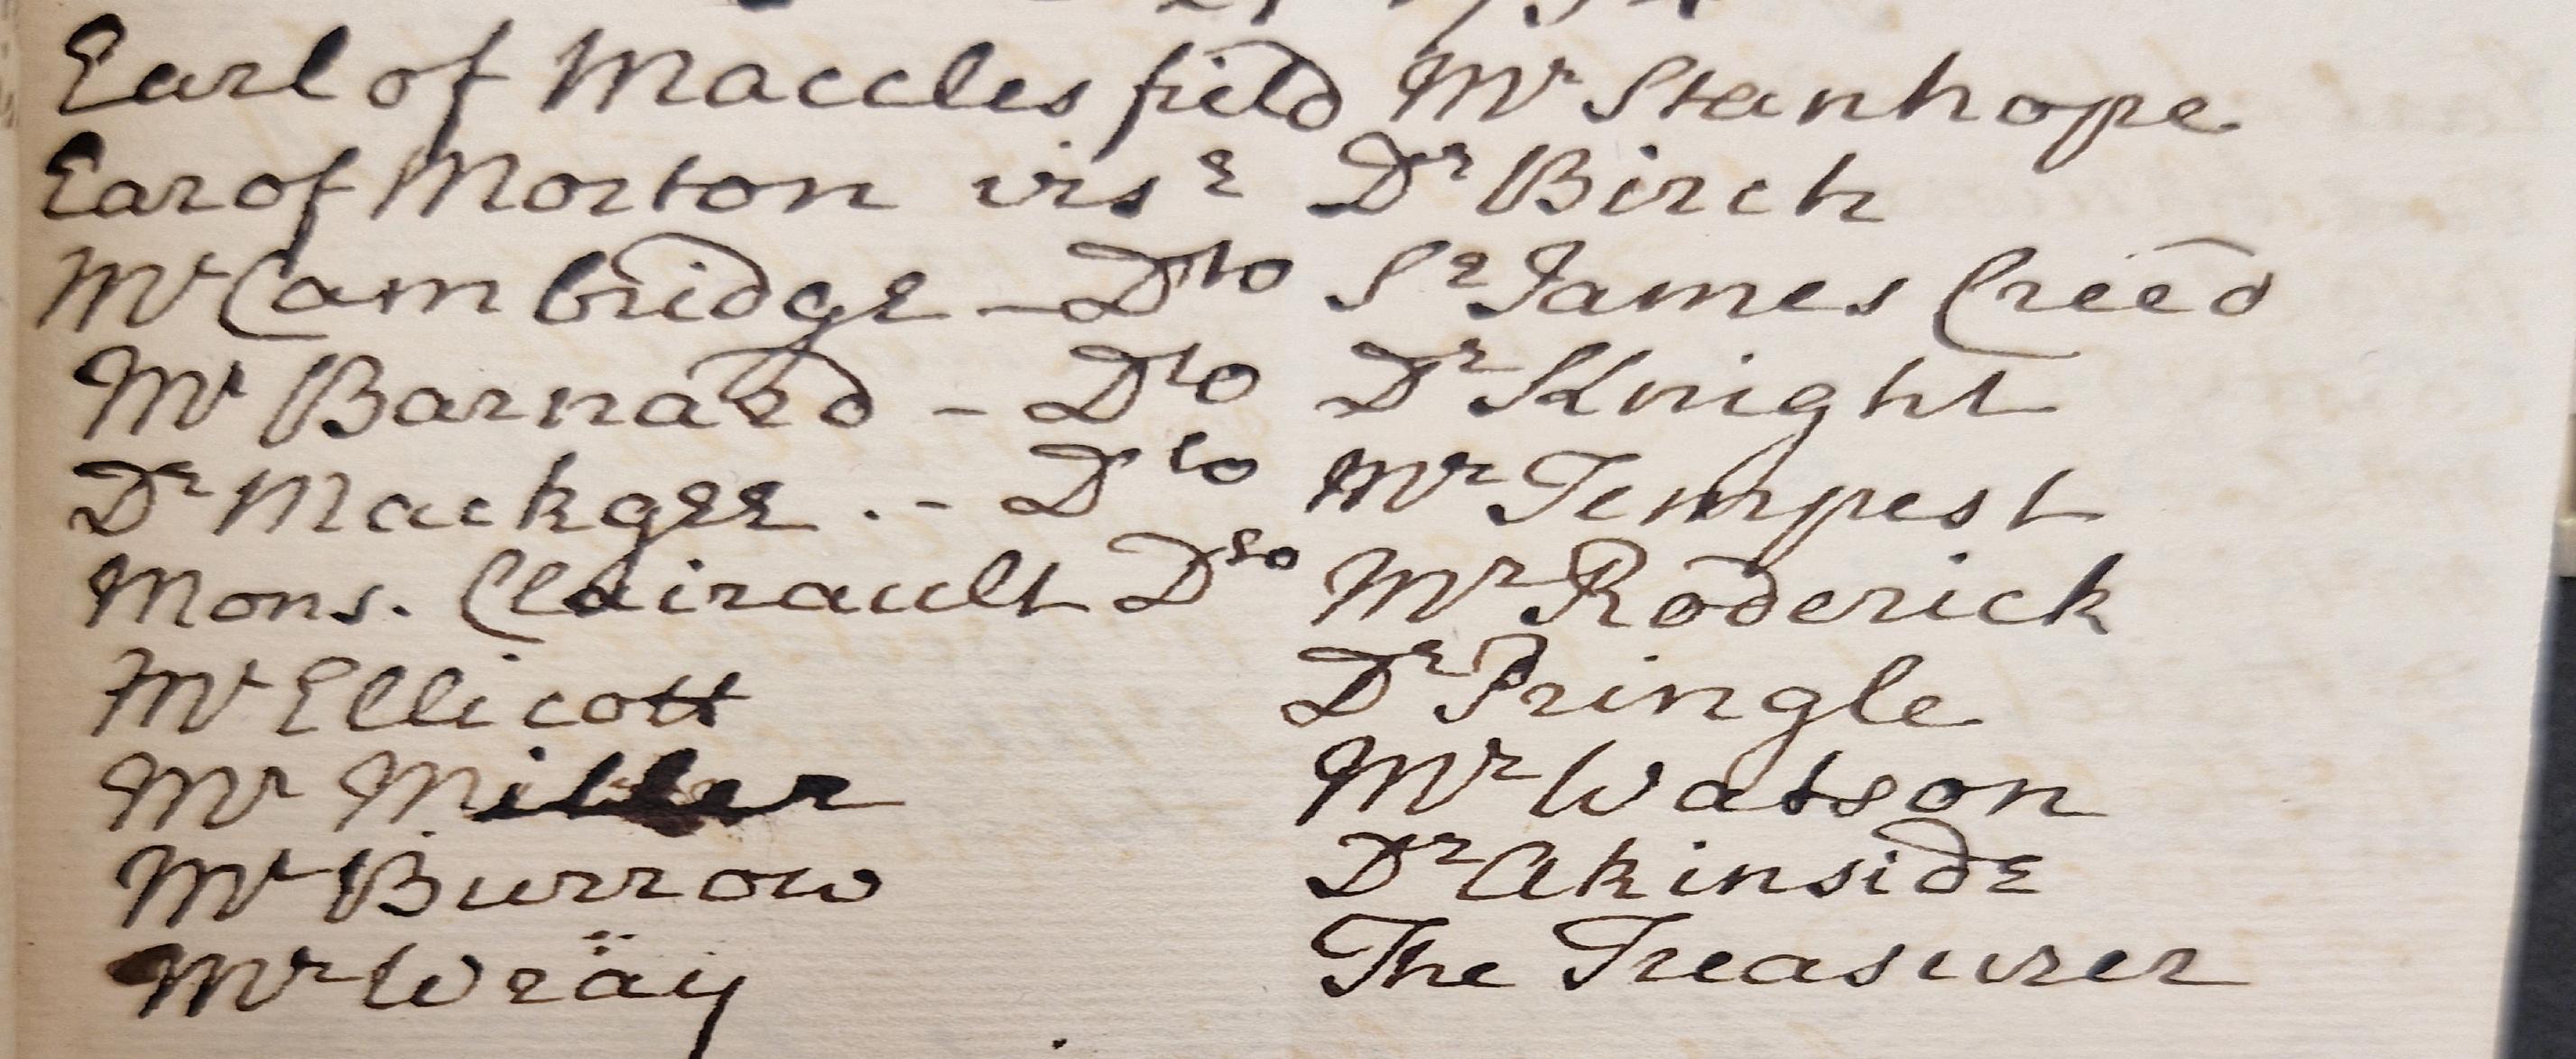 Earl of Macclesfield Mr Stanhope
Ear of Morton visr Dr Birch
Mr Cambridge - Dto Sr James Creed
Mr Barnard - Dto Dr Knight
Dr Mackgee . - Dto Mr Tempest
Mons. Clairault Dto Mr Roderick
Mr Ellicott Dr Pringle
Mr Miller Mr Watson
Mr Burrow Dr Akinside
Mr Wray The Treasurer